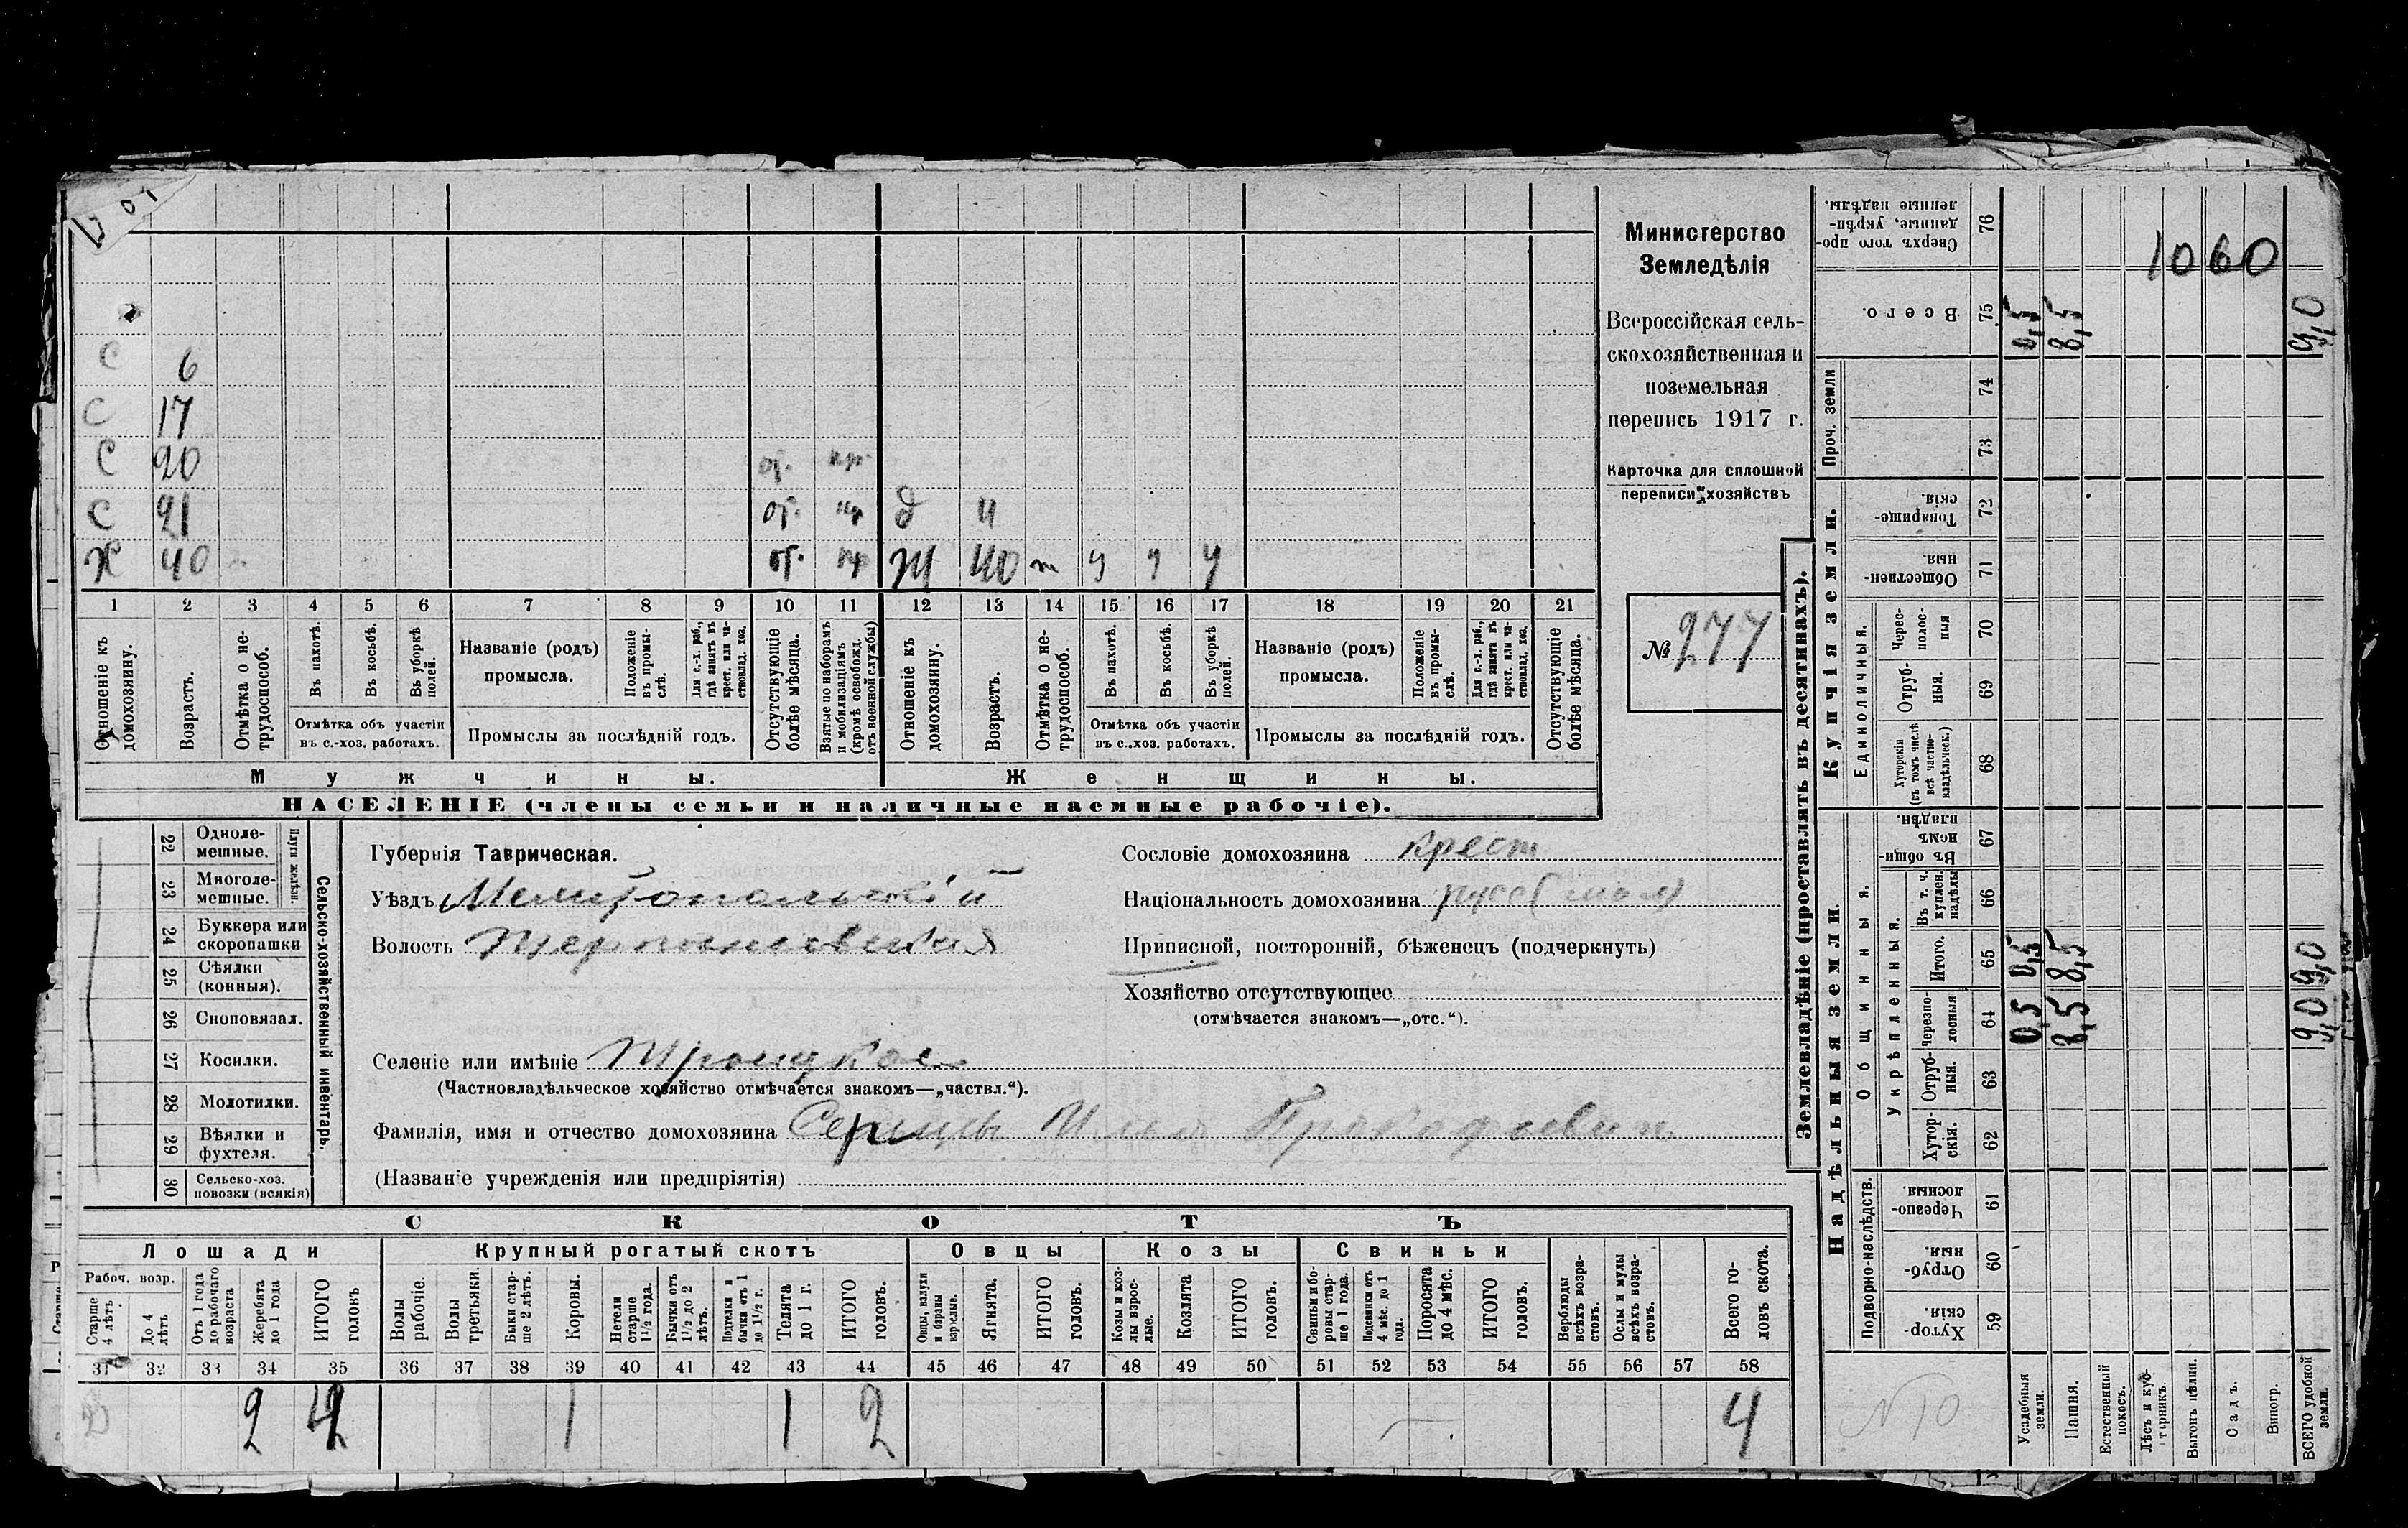 1060
С 6
С 17
С 20 от. пр.
С 21 от. пр д 11
Х 40 от. пр Ж 40 т у у у
1 2 3 4 5 6 7 8 9 10 11 12 13 14 15 16 17 18 19 20 21
Отношеніе къ домохозяину.
Возрастъ.
Отмѣтка о нетрудоспособ.
Въ пахотѣ.
Въ косьбѣ.
Въ уборкѣ полей.
Отмѣтка объ участіи въ с.-хоз. работахъ.
Названіе (родъ) промысла.
Положеніе въ промыслѣ.
Для с.-х. раб., гдѣ занятъ въ крест. или частновлад. хоз.
Промыслы за послѣдній годъ.
Отсутствующіе болѣе мѣсяца.
Взятые по наборамъ и мобилизаціямъ (кромѣ освобожд. отъ военной службы)
Отношеніе къ домохозяину.
Возрастъ.
Отмѣтка о нетрудоспособ.
Въ пахотѣ.
Въ косьбѣ.
Въ уборкѣ полей.
Отмѣтка объ участіи въ с.-хоз. работахъ.
Названіе (родъ) промысла.
Положеніе въ промыслѣ.
Для с.-х. раб., гдѣ занята въ крест. или частновлад. хоз.
Промыслы за послѣдній годъ.
Отсутствующіе болѣе мѣсяца.
Мужчины.
Женщины.
НАСЕЛЕНІЕ (члены семьи и наличные наемные рабочіе).
Министерство
Земледѣлія
Всероссійская сель-
скохозяйственная и
поземельная
перепись 1917 г.
Карточка для сплошной
переписи хозяйствъ
№ 277
22 Одноле-мешные.
23 Многоле-мешные.
Плуги желѣзн.
24 Буккера или скоропашки
25 Сѣялки (конныя).
26 Сноповязал.
27 Косилки.
28 Молотилки.
29 Вѣялки и фухтеля.
30 Сельско-хоз. повозки (всякія)
Сельско-хозяйственный инвентарь.
Губернія Таврическая.
Уѣздъ Мелитопольскій
Волость
Сословіе домохозяина крест
Національность домохозяина русс (мал)
Приписной, посторонній, бѣженецъ (подчеркнуть)
Хозяйство отсутствующее
(отмѣчается знакомъ—„отс.“).
Селеніе или имѣніе Троицкое
(Частновладѣльческое хозяйство отмѣчается знакомъ—„частвл.“).
Фамилія, имя и отчество домохозяина Илья Прокофьевич
(Названіе учрежденія или предпріятія)
СКОТЪ
Лошади
Крупный рогатый скотъ
Овцы
Козы
Свиньи
Рабоч. возр.
Старше 4 лѣтъ
До 4 лѣтъ
Отъ 1 года до рабочаго возраста
Жеребята до 1 года
ИТОГО головъ
Волы рабочіе.
Волы третьяки.
Быки старше 2 лѣтъ.
Коровы.
Нетели старше 1½ года.
Бычки отъ 1½ до 2 лѣтъ.
Подтелки и бычки отъ 1 до 1½ г.
Телята до 1 г.
ИТОГО головъ.
Овцы, валухи и бараны взрослые.
Ягнята.
ИТОГО головъ.
Козы и козлы взрослые.
Козлята
ИТОГО головъ.
Свиньи и боровы старше 1 года.
Подсвинки отъ 4 мѣс. до 1 года.
Поросята до 4 мѣс.
ИТОГО головъ.
Верблюды всѣхъ возрастовъ.
Ослы и мулы всѣхъ возрастовъ.
Всего головъ скота.
31 32 33 34 35 36 37 38 39 40 41 42 43 44 45 46 47 48 49 50 51 52 53 54 55 56 57 58
2 1 1 2 4
Землевладѣніе (проставлять въ десятинахъ).
Надѣльныя земли
Купчія земли.
Проч. земли
Общинныя.
Укрѣпленныя.
Единоличныя.
Подворно-наслѣдств.
Сверхъ того проданные, укрѣпленные надѣлы. 76
Всего. 75 0,5 8,5 9,0
74
73
Товарищескія. 72
Общественныя. 71
Чересполосныя 70
Отрубныя. 69
Хуторскія (въ томъ числѣ всѣ частновладѣльческ.) 68
Въ общинномъ владѣн. 67
Въ т. ч. куплен. надѣлы 66
Итого. 65 0,5 8,5 9,0
Черезполосныя 64 0,5 8,5 9,0
Отрубныя. 63
Хуторскія. 62
Черезполосныя. 61
Отрубныя. 60
Хуторскія 59
Усадебныя земли.
Пашня.
Естественный покосъ.
Лѣсъ и кустарникъ.
Выгонъ цѣлин.
Садъ.
Виногр.
ВСЕГО удобной земли.
№10